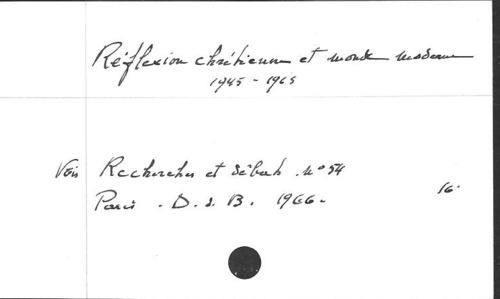 Réflexion chrétienne et monde moderne
1945 - 1965
Voir Recherches et débats . N° 54
Paris . D. d. B. 1966.
16.